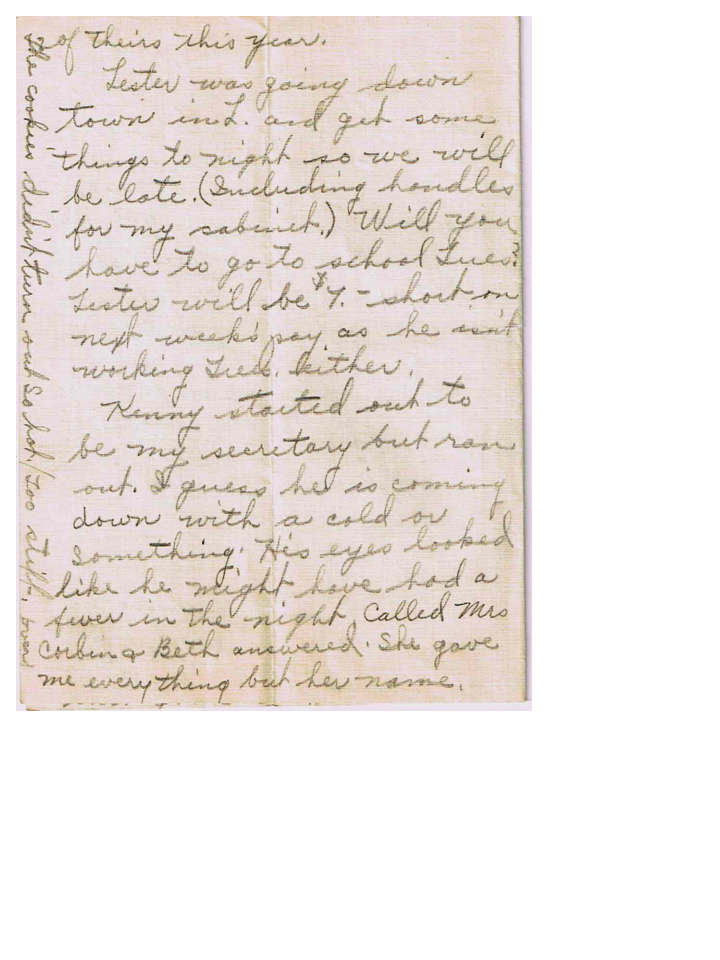 of theirs this year.
Lester was going down
town in L. and get some
things to night so we will
be late. (Including handles
for my cabinet.) Will you
have to go to school Tues?
Lester will be $7.- short on
next week's pay as he isn't
working Tues. either.
Kenny started out to
be my secretary but ran
out. I guess he is coming
down with a cold or
something. His eyes looked
like he might have had a
fever in the night. Called Mrs
Corbin & Beth answered. She gave
me everything but her name.
The cookies didn't turn out so hot/too stiff. over